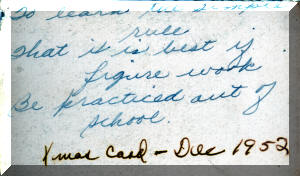 To learn the simple
rule
That it is best if
figure work
Be practiced out of
school.
Xmas Card - Dec 1952